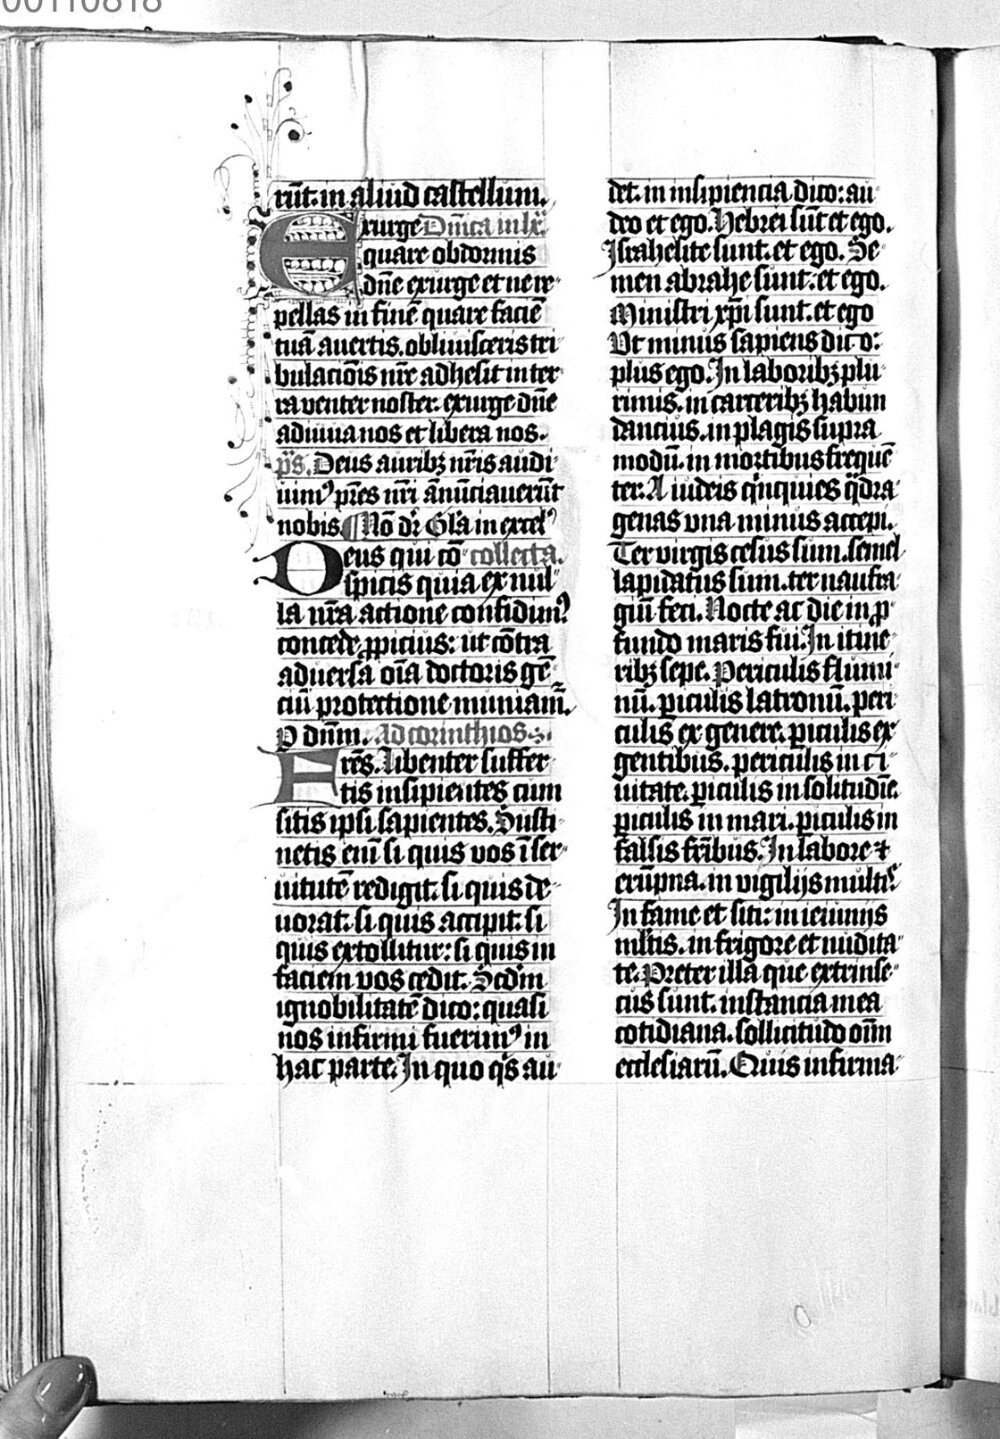 00110818
rūt. in aliud castellum.
Exurge Dn̄ica in lx̄
quare obdormis
dn̄e exurge et ne re-
pellas in finē quare faciē
tuā auertis. obliuisceris tri-
bulaciōis nr̄e adhesit in ter-
ra venter noster. exurge dn̄e
adiuua nos et libera nos.
p̄s. Deus auribꝫ nr̄is audi-
uimꝰ pr̄es nr̄i ānūciauerūt
nobis. Nō dr̄ Gl̄a in excelꝰ
Deus qui cō- collecta.
spicis quia ex nul-
la nr̄a actione confidimꝰ
concede ꝓpicius: ut cōtra
aduersa oīa doctoris gē-
ciū protectione muniam̄.
P dn̄m. Ad corinthios.
Fr̄es. Libenter suffer-
tis insipientes cum
sitis ipsi sapientes. Susti-
netis eni si quis vos ī ser-
uitutē redigit. si quis de-
uorat. si quis accipit. si
quis extollitur: si quis in
faciem vos cedit. Scd̄m
ignobilitatē dico: quasi
nos infirmi fuerimꝰ in
hac parte. In quo q̄s au-
det. in insipiencia dico: au-
deo et ego. Hebrei sūt et ego.
Israhelite sunt. et ego. Se-
men abrahe sunt. et ego.
Ministri xp̄i sunt. et ego
Vt minus sapiens dico:
plus ego. In laboribꝫ plu-
rimis. in carceribꝫ habun-
dancius. in plagis supra
modū. in mortibus frequē-
ter. A iudeis qinquies qdra-
genas vna minus accepi.
Ter virgis cesus sum. semel
lapidatus sum. ter naufra-
giū feci. Nocte ac die in ꝓ-
fundo maris fui. In itine-
ribꝫ sepe. Periculis flumi-
nū. ꝑiculis latronū. peri-
culis ex genere. ꝑiculis ex
gentibus. periculis in ci-
uitate. ꝑiculis in solitudīe.
ꝑiculis in mari. ꝑiculis in
falsis fr̄ibus. In labore ⁊
erūpna. in vigilijs multiꝭ
In fame et siti: in ieiunijs
ml̄tis. in frigore et nudita-
te. Preter illa que extrinse-
cus sunt. instancia mea
cotidiana. sollicitudo om̄
ecclesiarū. Quis infirma-